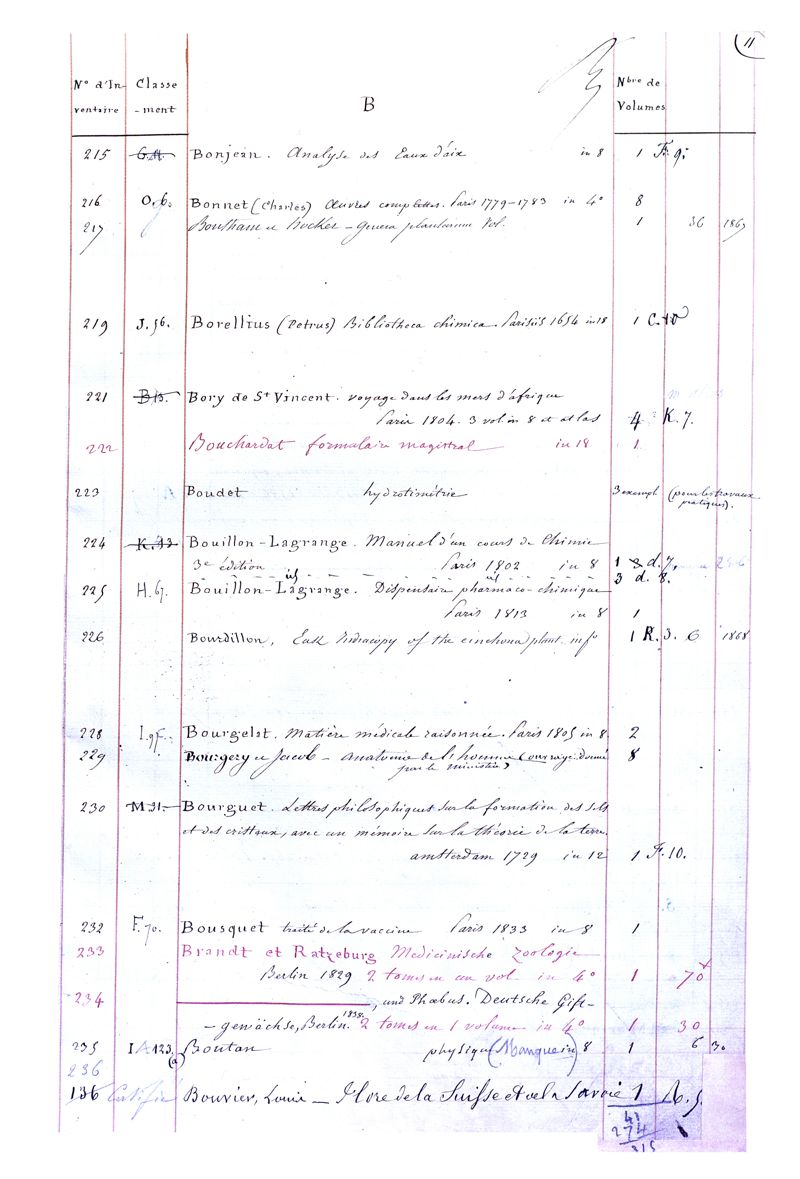 11
N° d'In- Classe B Nbre de
ventaire -ment Volumes
215 G.11. Bonjean. Analyse des Eaux d'aix in 8 1 F. 9.
216 O. 6. Bonnet (Charles) Œuvres complettes. Paris 1779-1783 in 4° 8
217 Bentham et Hooker - Genera plantarum Vol. 1 36 1867
219 J. 56. Borellius (Petrus) Bibliotheca chimica. Parisiis 1654 in 18 1 C. 10
221 B 13. Bory de St Vincent. voyage dans les mers d'afrique
Paris 1804. 3 vol in 8 et atlas 4 K. 7.
222 Bouchardat formulaire magistral in 18 1
223 Boudet hydrotimétrie 3 exempl (pour les travaux
pratiques).
224 K. 33 Bouillon-Lagrange. Manuel d'un cours de Chimie
3e édition Paris 1802 in 8 1 3 d. 7.
id id 3 d. 8.
225 H. 67. Bouillon-Lagrange. Dispensaire pharmaco-chimique
Paris 1813 in 8 1
226 Bourdillon, East of the cinchona plant. in f° 1 R. 3. 6 1868
228 I. 95. Bourgelat. Matière médicale raisonnée. Paris 1805 in 8. 2
229 Bourgery et Jacob - anatomie de l'homme (ouvrage donné 8
par le ministère)
230 M 31. Bourguet. Lettres philosophiques sur la formation des sels
et des cristaux, avec un mémoire sur la théorie de la terre.
amsterdam 1729 in 12 1 F. 10.
232 F. 70. Bousquet traité de la vaccine Paris 1833 in 8 1
233 Brandt et Ratzeburg Medicinische Zoologie
Berlin 1829 2 tomes en un vol. in 4° 1 70
234 , und Phœbus. Deutsche Gift-
-gewächse, Berlin. 1838. 2 tomes en 1 volume in 4° 1 30
235 I A 123. (a) Boutan physique (Manque in) 8 1 6 30
236
136 Bouvier, Louis - Flore de la Suisse et de la Savoie 1 A. 5.
41
274
315